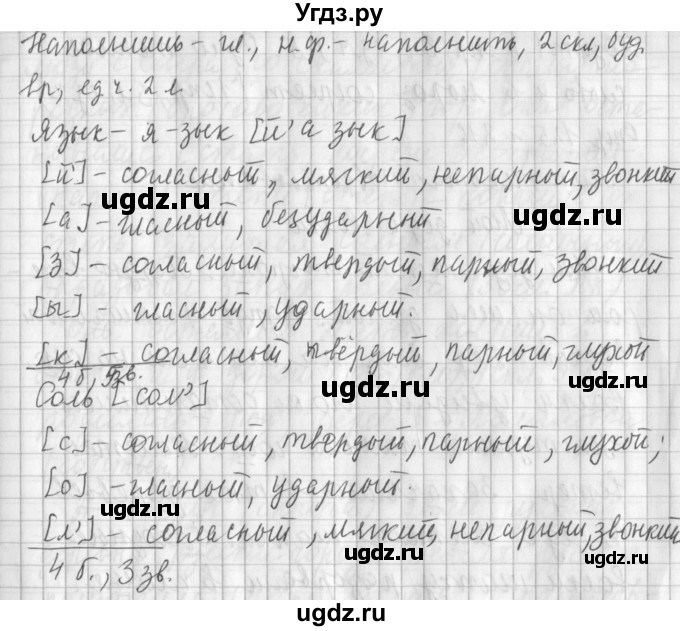 Угдз.ру
Наполнишь - гл., н.ф. - наполнить, 2 скл, буд.
вр, ед ч. 2 л.
Язык - я-зык [й'а зык]
[й'] - согласный, мягкий, непарный, звонкий
[а] - гласный, безударный
[з] - согласный, твердый, парный, звонкий
[ы] - гласный, ударный.
[к] - согласный, твёрдый, парный, глухой
4 б, 5 зв.
Соль [сол']
[с] - согласный, твердый, парный, глухой;
[о] - гласный, ударный.
[л'] - согласный, мягкий, непарный, звонкий
4 б., 3 зв.
ugdz.ru
ugdz.ru
ugdz.ru
ugdz.ru
ugdz.ru
ugdz.ru
ugdz.ru
ugdz.ru